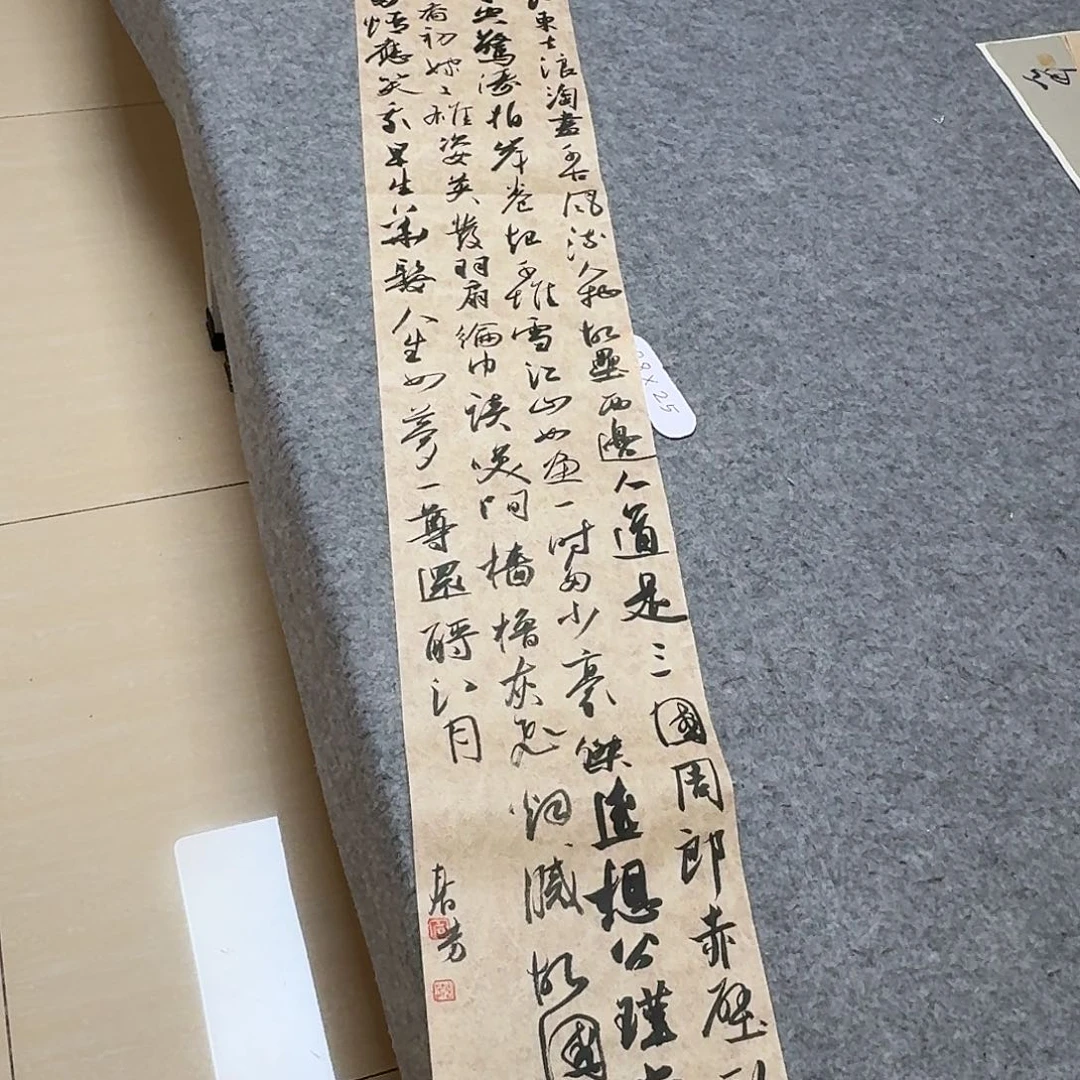 東去浪淘盡千古風流人物故壘西邊人道是三國周郎赤壁
驚濤拍岸卷起千堆雪江山如畫一時多少豪傑遙想公瑾
初嫁了雄姿英發羽扇綸巾談笑間檣櫓灰飛煙滅故國
情應笑我早生華髮人生如夢一尊還酹江月
春芳